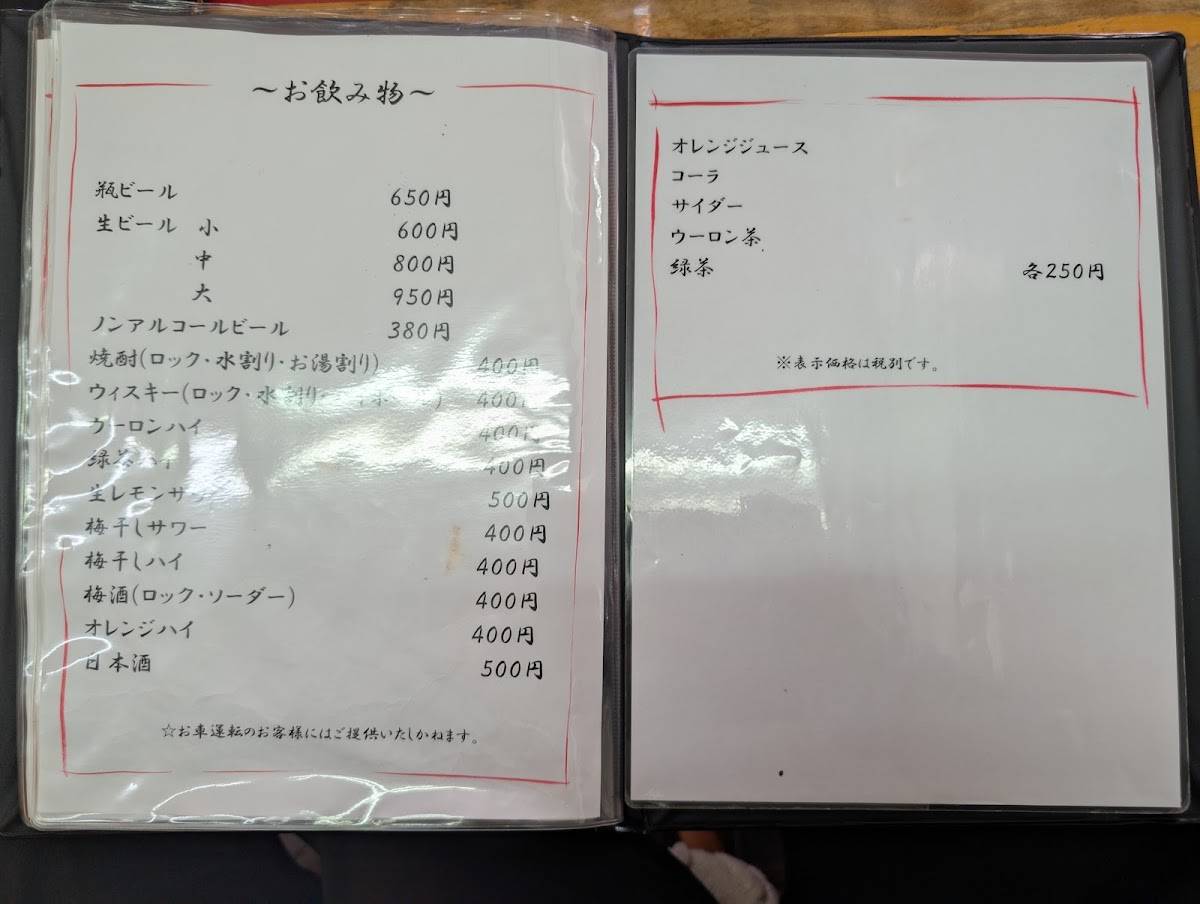 ～お飲み物～
瓶ビール 650円
生ビール 小 600円
中 800円
大 950円
ノンアルコールビール 380円
焼酎(ロック・水割り・お湯割り) 400円
ウィスキー(ロック・水割り・ ) 400円
ウーロンハイ 400円
緑茶ハイ 400円
生レモンサワー 500円
梅干しサワー 400円
梅干しハイ 400円
梅酒(ロック・ソーダー) 400円
オレンジハイ 400円
日本酒 500円
☆お車運転のお客様にはご提供いたしかねます。
オレンジジュース
コーラ
サイダー
ウーロン茶
緑茶 各250円
※表示価格は税別です。